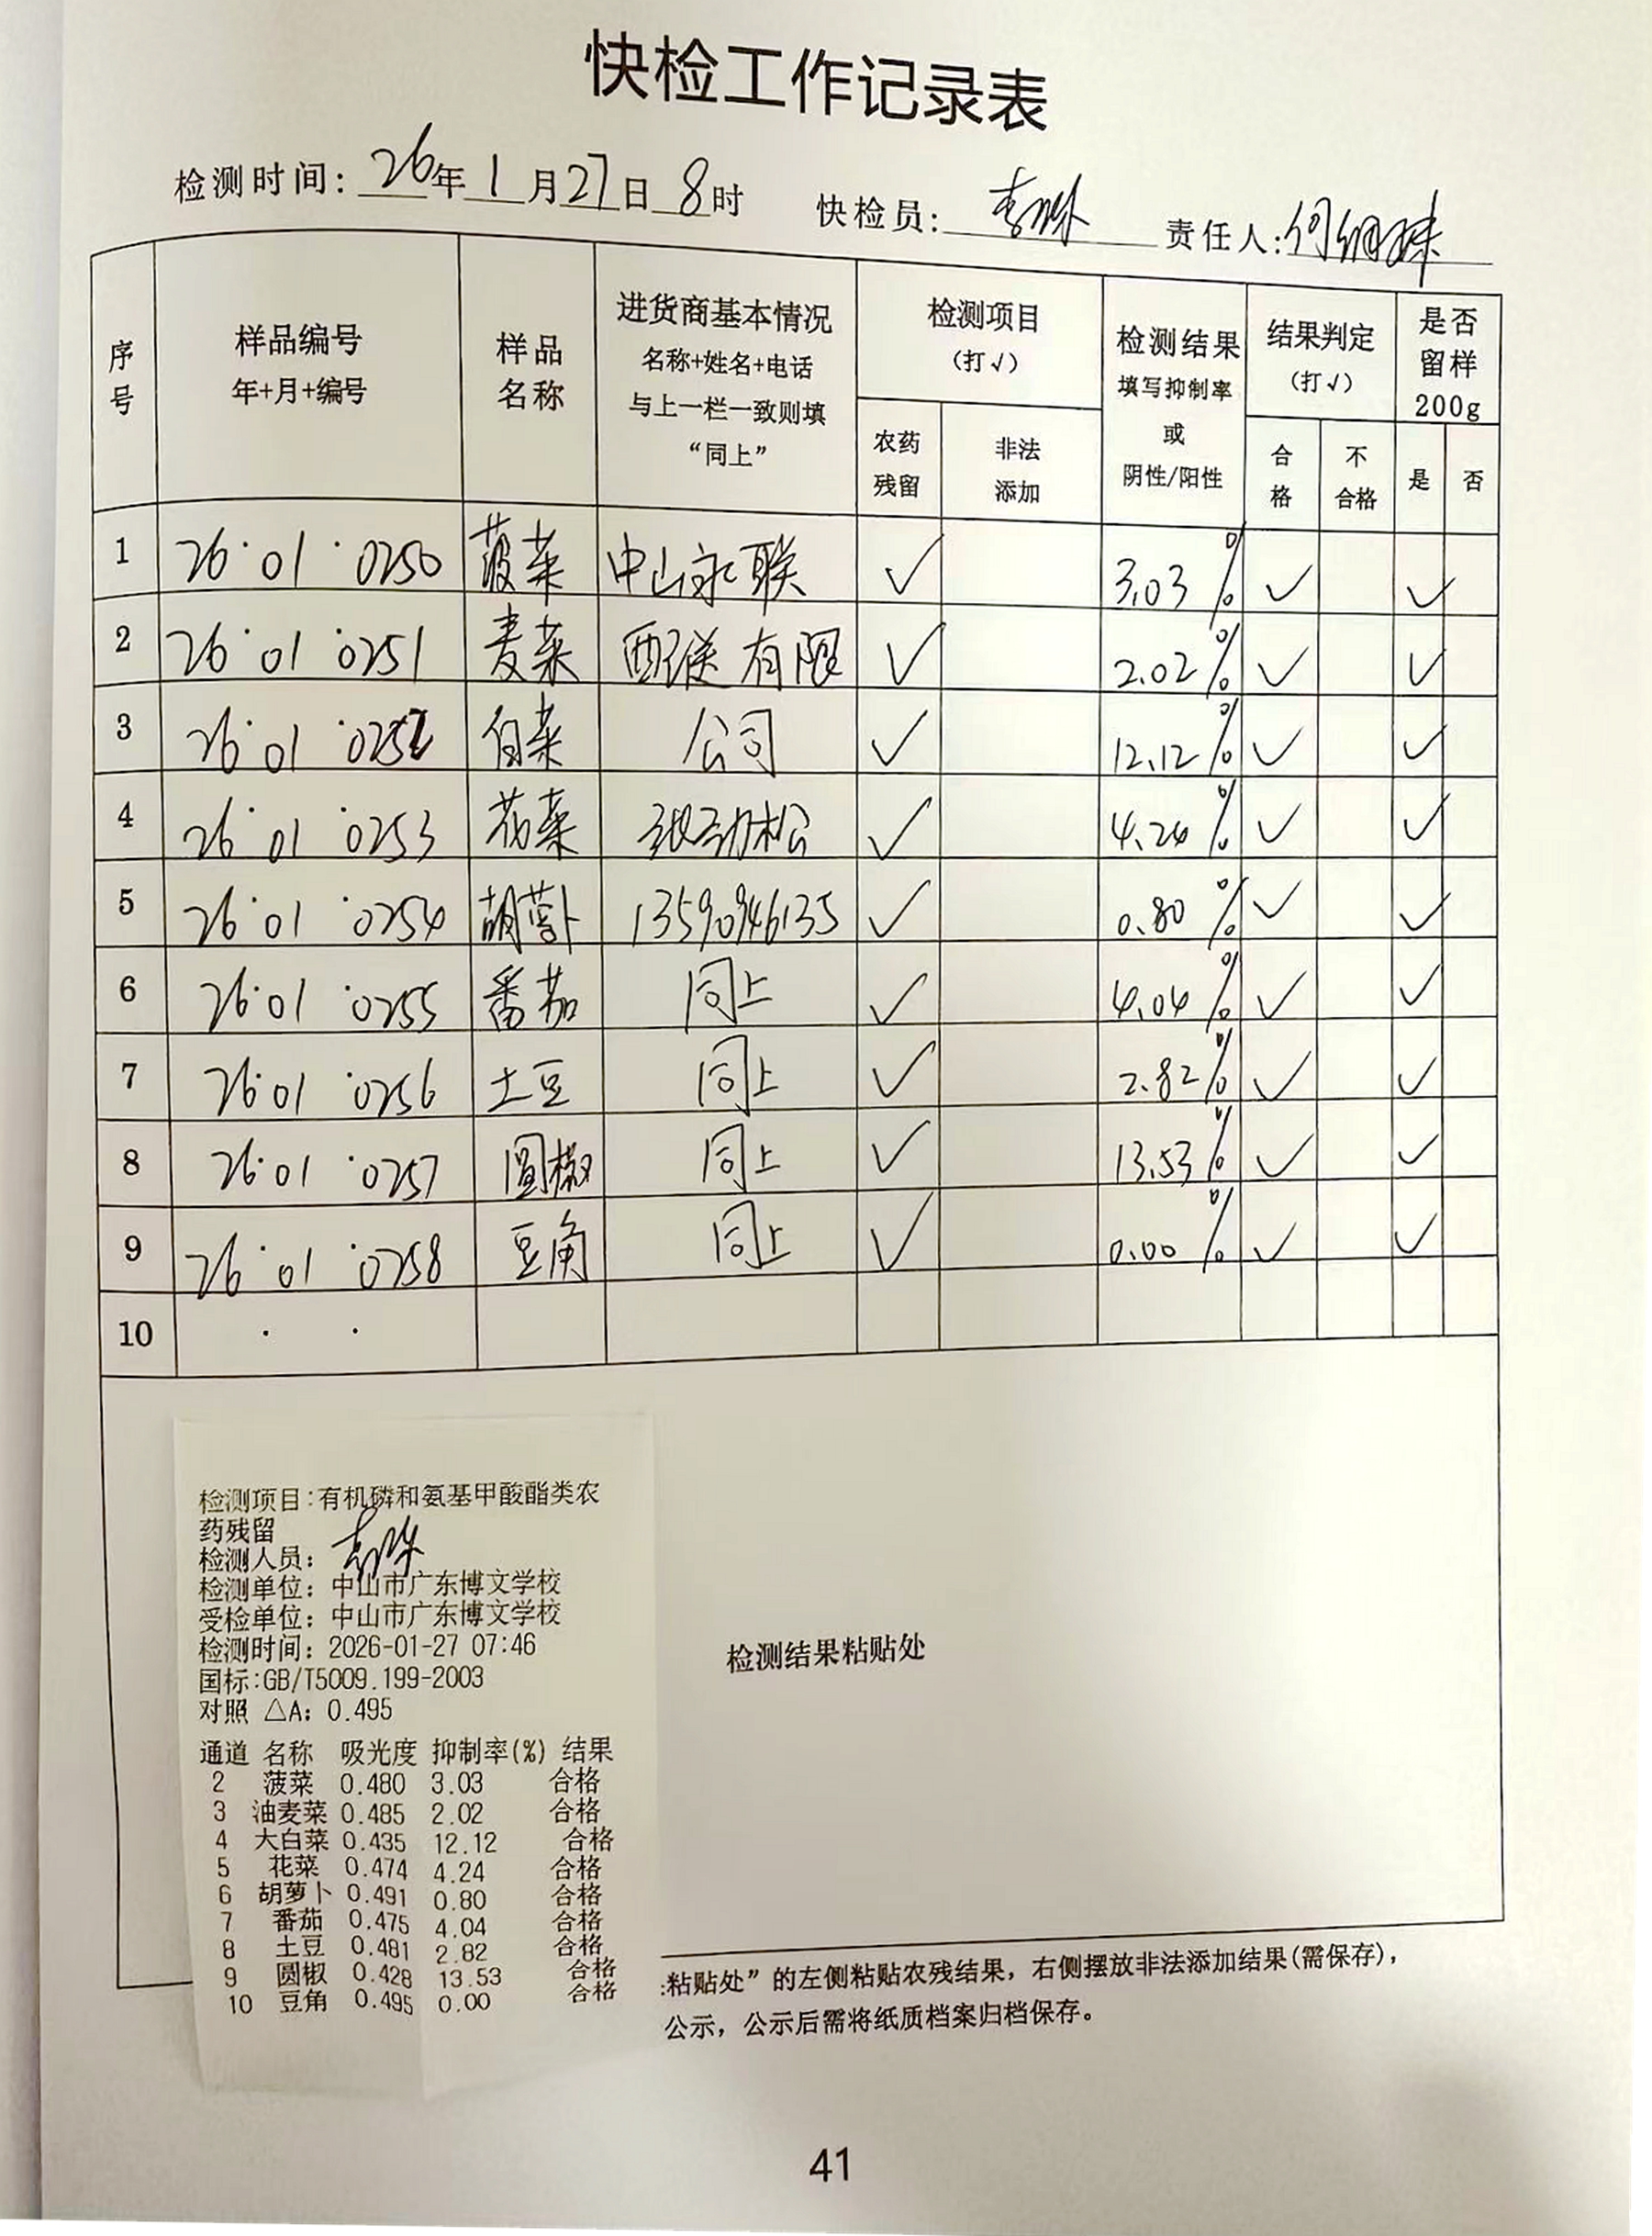 快检工作记录表
检测时间: 26年1月27日8时 快检员: 责任人:
序号 样品编号 年+月+编号 样品名称 进货商基本情况 名称+姓名+电话 与上一栏一致则填“同上” 检测项目 (打√) 农药残留 非法添加 检测结果 填写抑制率 或 阴性/阳性 结果判定 (打√) 合格 不合格 是否留样200g 是 否
1 26·01·0250 菠菜 中山永联 √ 3.03% √ √
2 26·01·0251 麦菜 配送有限 √ 2.02% √ √
3 26·01·0252 白菜 公司 √ 12.12% √ √
4 26·01·0253 花菜 劲松 √ 4.24% √ √
5 26·01·0254 胡萝卜 13590946135 √ 0.80% √ √
6 26·01·0255 番茄 同上 √ 4.04% √ √
7 26·01·0256 土豆 同上 √ 2.82% √ √
8 26·01·0257 圆椒 同上 √ 13.53% √ √
9 26·01·0258 豆角 同上 √ 0.00% √ √
10 · ·
检测项目:有机磷和氨基甲酸酯类农
药残留
检测人员:
检测单位: 中山市广东博文学校
受检单位: 中山市广东博文学校
检测时间: 2026-01-27 07:46
国标:GB/T5009.199-2003
对照 △A: 0.495
通道 名称 吸光度 抑制率(%) 结果
2 菠菜 0.480 3.03 合格
3 油麦菜 0.485 2.02 合格
4 大白菜 0.435 12.12 合格
5 花菜 0.474 4.24 合格
6 胡萝卜 0.491 0.80 合格
7 番茄 0.475 4.04 合格
8 土豆 0.481 2.82 合格
9 圆椒 0.428 13.53 合格
10 豆角 0.495 0.00 合格
检测结果粘贴处
粘贴处”的左侧粘贴农残结果，右侧摆放非法添加结果(需保存)，
公示，公示后需将纸质档案归档保存。
41